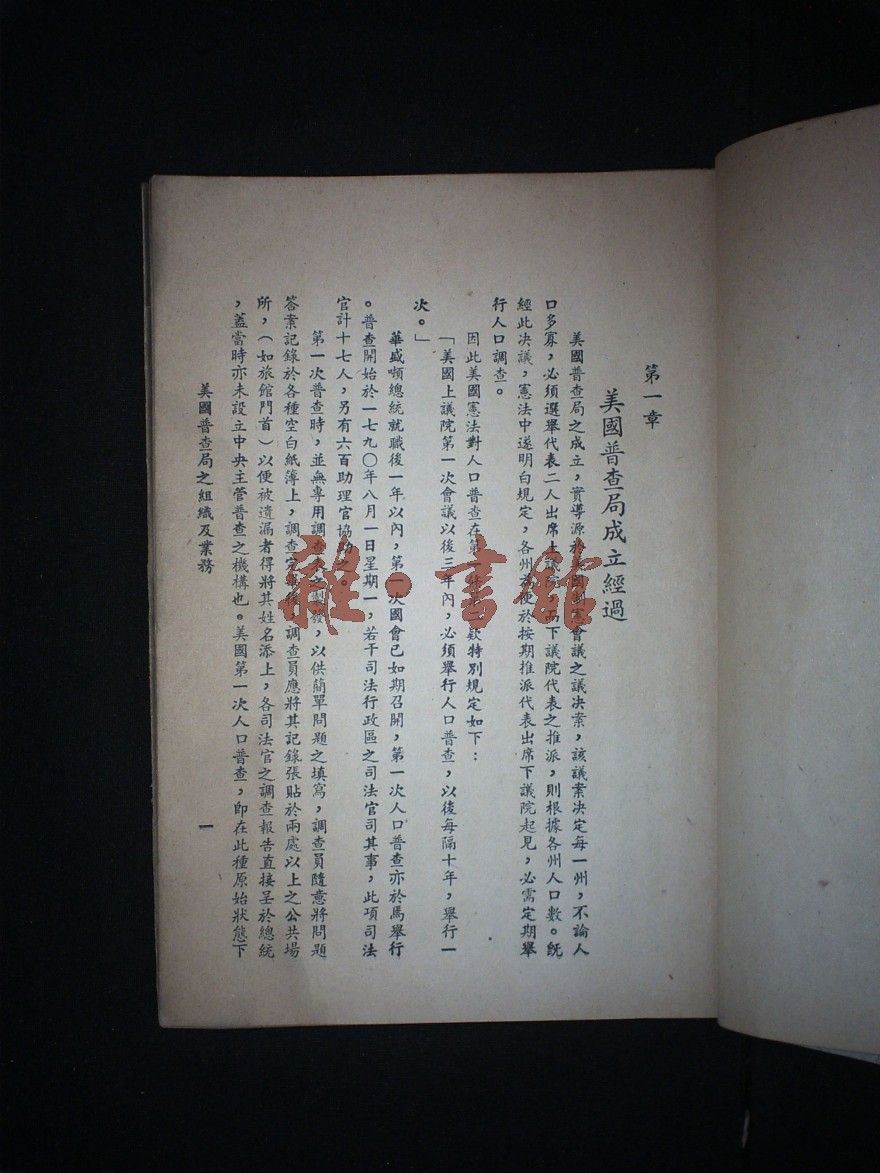 第一章
美國普查局成立經過
美國普查局之成立，實導源於美國制憲會議之議決案，該議案決定每一州，不論人
口多寡，必須選舉代表二人出席上議院，而下議院代表之推派，則根據各州人口數。旣
經此决議，憲法中遂明白規定，各州為便於按期推派代表出席下議院起見，必需定期舉
行人口調查。
因此美國憲法對人口普查在第一款特別規定如下：
「美國上議院第一次會議以後三年內，必須舉行人口普查，以後每隔十年，舉行一
次。」
華盛頓總統就職後一年以內，第一次國會已如期召開，第一次人口普查亦於焉舉行
。普查開始於一七九〇年八月一日星期一，若干司法行政區之司法官司其事，此項司法
官計十七人，另有六百助理官協助之。
第一次普查時，並無專用調查表之製發，以供簡單問題之填寫，調查員隨意將問題
答案記錄於各種空白紙簿上，調查完畢後，調查員應將其記錄張貼於兩處以上之公共場
所，（如旅館門首）以便被遺漏者得將其姓名添上，各司法官之調查報告直接呈於總統
，蓋當時亦未設立中央主管普查之機構也。美國第一次人口普查，即在此種原始狀態下
美國普查局之組織及業務
一
雜·書館